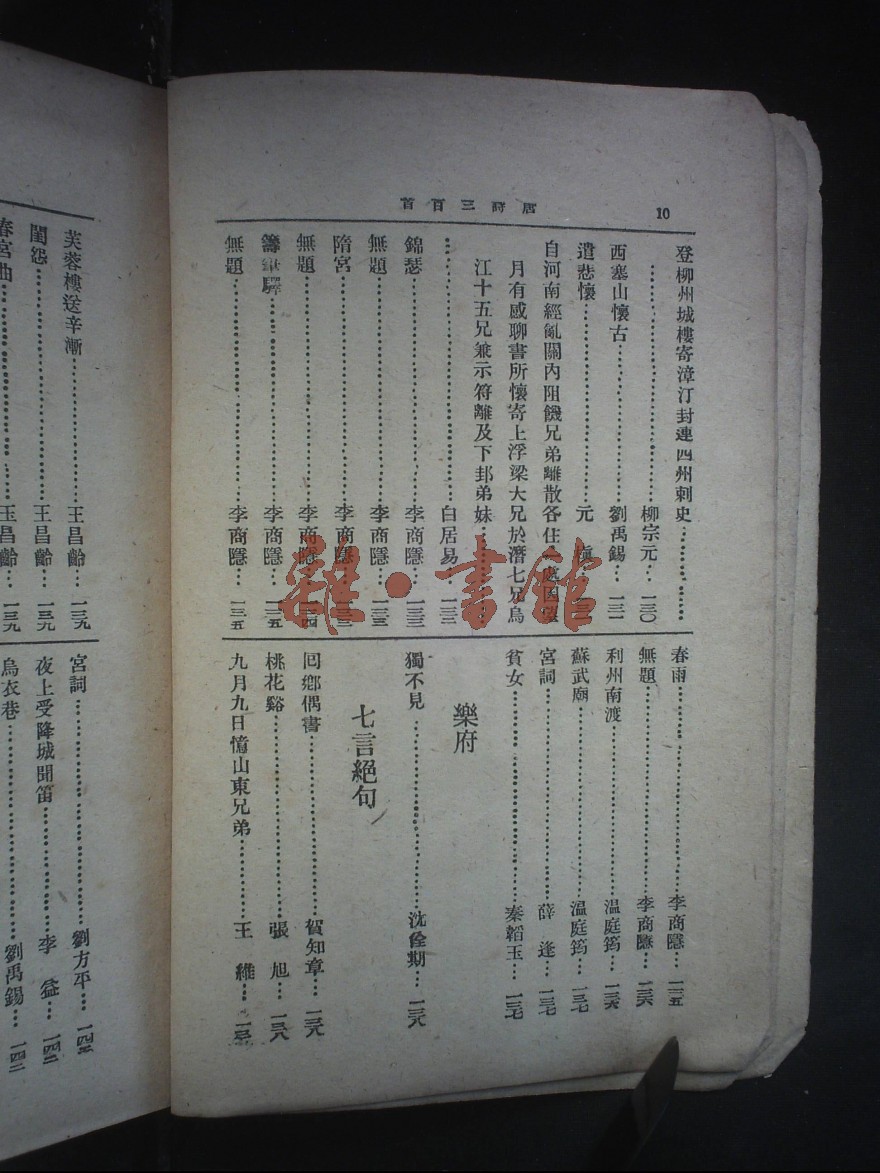 唐詩三百首
10
登柳州城樓寄漳汀封連四州刺史…………
…………柳宗元…一三〇
西塞山懷古…………劉禹錫…一三一
遣悲懷…………元 稹…
自河南經亂關內阻饑兄弟離散各在一處因望
月有感聊書所懷寄上浮梁大兄於潛七兄烏
江十五兄兼示符離及下邽弟妹…………
…………白居易…一三三
錦瑟…………李商隱…一三三
無題…………李商隱…一三三
隋宮…………李商隱…
無題…………李商隱…一三四
籌筆驛…………李商隱…一三五
無題…………李商隱…一三五
春雨…………李商隱…一三五
無題…………李商隱…一三六
利州南渡…………温庭筠…一三六
蘇武廟…………温庭筠…一三七
宮詞…………薛 逢…一三七
貧女…………秦韜玉…一三七
樂府
獨不見…………沈佺期…一三八
七言絕句
回鄉偶書…………賀知章…一三八
桃花谿…………張 旭…一三八
九月九日憶山東兄弟…………王 維…
芙蓉樓送辛漸…………王昌齡…一三九
閨怨…………王昌齡…一三九
春宮曲…………王昌齡…一三九
宮詞…………劉方平…
夜上受降城聞笛…………李 益…一四二
烏衣巷…………劉禹錫…一四二
雜·書館